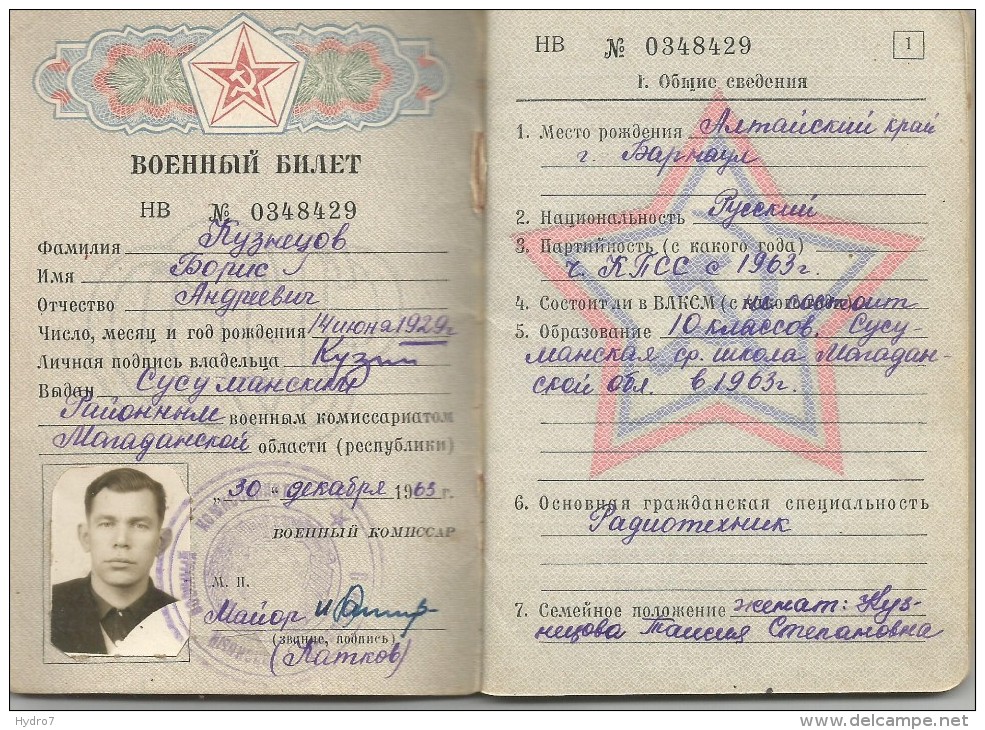 ВОЕННЫЙ БИЛЕТ
НВ № 0348429
Фамилия Кузнецов
Имя Борис
Отчество Андреевич
Число, месяц и год рождения 14 июня 1929 г
Личная подпись владельца Кузн
Выдан Сусуманским
Районным военным комиссариатом
Магаданской области (республики)
„30“ декабря 1963 г.
ВОЕННЫЙ КОМИССАР
М. П.
Майор
(звание, подпись)
(Латков)
НВ № 0348429
1
I. Общие сведения
1. Место рождения Алтайский край
г. Барнаул
2. Национальность Русский
3. Партийность (с какого года)
ч. КПСС с 1963 г.
4. Состоит ли в ВЛКСМ (с какого года) не состоит
5. Образование 10 классов. Сусу-
манская ср. школа Магадан-
ской обл. в 1963 г.
6. Основная гражданская специальность
Радиотехник
7. Семейное положение женат: Куз-
нецова Таисия Степановна
Hydro7
www.delcampe.net